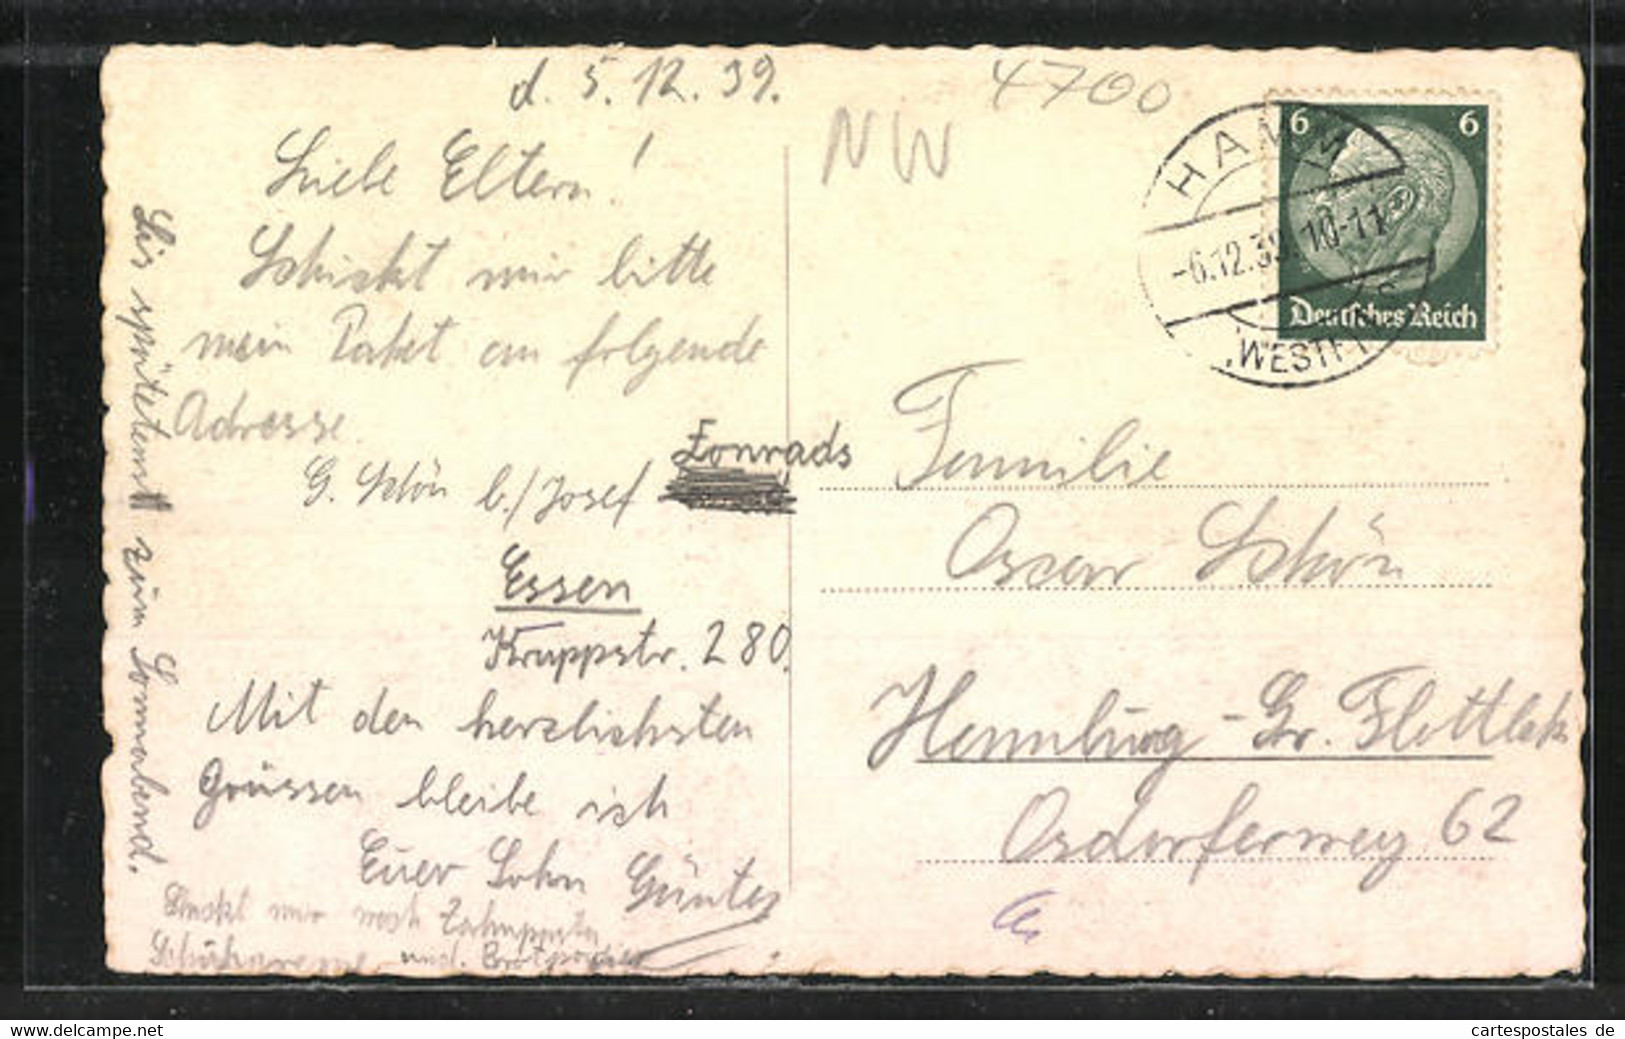 d. 5. 12. 39.
Liebe Eltern!
Schickt mir bitte
mein Paket an folgende
Adresse.
G. Schön b./Josef Konrads
Essen
Kruppstr. 280.
Mit den herzlichsten
Grüssen bleibe ich
Euer Sohn Günter
Schickt mir noch Zahnpasta
Schuhkreme und Brotpapier
bis spätestens zum Sonnabend.
NW
4700
HAMM
-6.12.39. 10-11
(WESTF)
6 6
Deutsches Reich
Familie
Oscar Schön
Hamburg-Gr. Flottbek
Osdorferweg 62
www.delcampe.net
cartespostales de